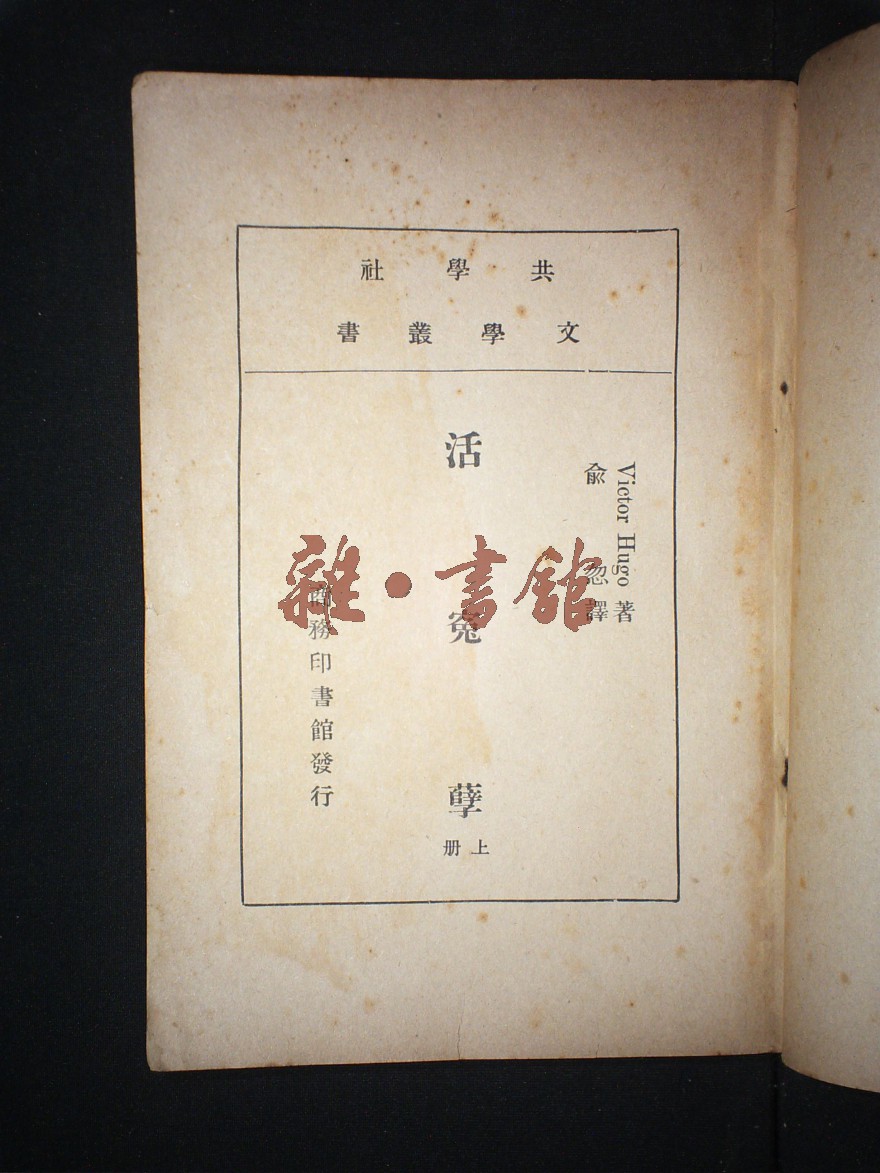 共學社
文學叢書
Victor Hugo 著
俞忽譯
活冤孽
上册
商務印書館發行
雜·書館